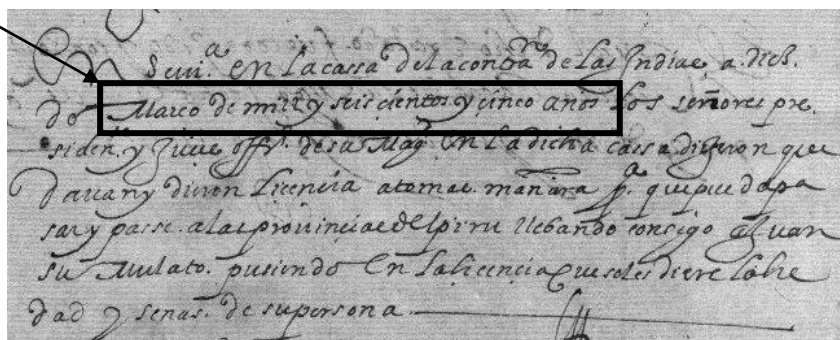 En Sevi.ª En la cassa de la contra.on de las Indias a diez
de Março de mill y seiscientos y cinco años Los señores pre
siden. y Juezes offi. de su Mag. En la dicha cassa dixeron que
davan y dieron Licencia a tomas p.ª que pueda pa
sar y passe. a las provincias del piru llebando consigo a Juan
su Mulato. En la licencia que se les diere la he
dad y senas. de su persona